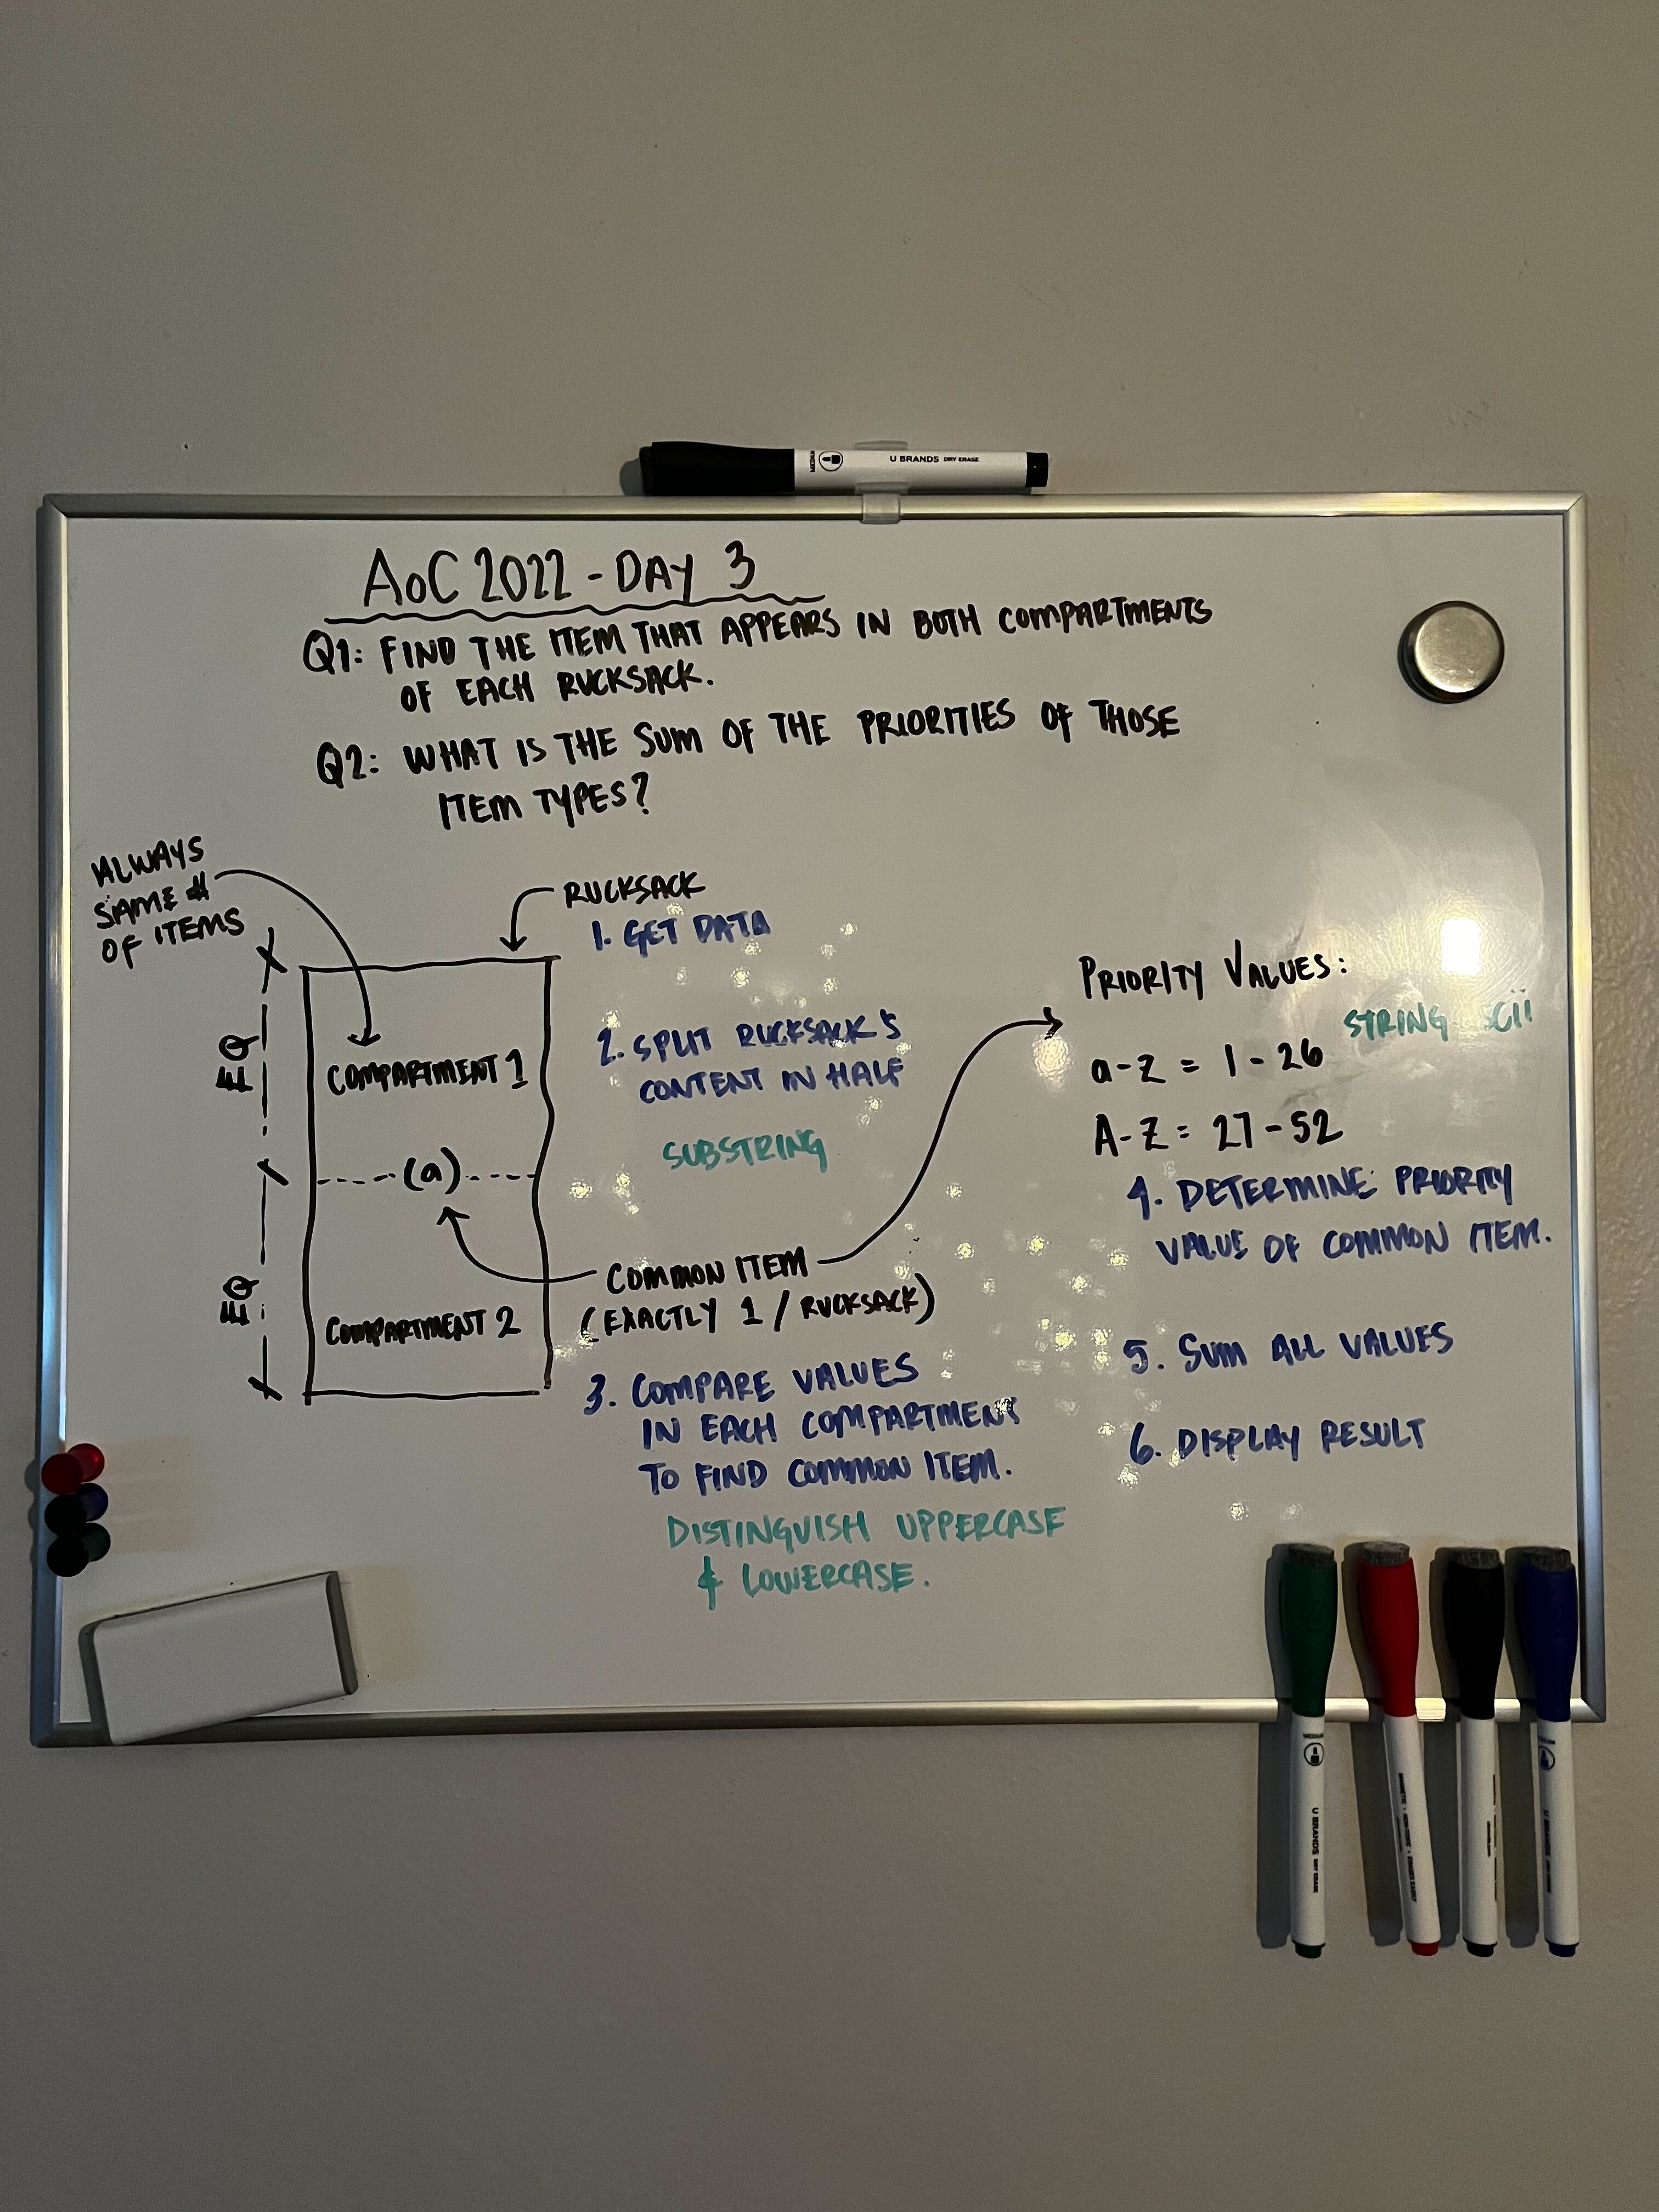 U BRANDS DRY ERASE
AoC 2022 - DAY 3
Q1: FIND THE ITEM THAT APPEARS IN BOTH COMPARTMENTS
OF EACH RUCKSACK.
Q2: WHAT IS THE SUM OF THE PRIORITIES OF THOSE
ITEM TYPES?
ALWAYS
SAME #
OF ITEMS
RUCKSACK
1. GET DATA
EQ
COMPARTMENT 1
2. SPLIT RUCKSACK'S
CONTENT IN HALF
SUBSTRING
(a)
EQ
COMPARTMENT 2
COMMON ITEM
(EXACTLY 1 / RUCKSACK)
3. COMPARE VALUES
IN EACH COMPARTMENT
TO FIND COMMON ITEM.
DISTINGUISH UPPERCASE
& LOWERCASE.
PRIORITY VALUES:
STRING SCii
a-z = 1-26
A-Z = 27-52
4. DETERMINE PRIORITY
VALUE OF COMMON ITEM.
5. SUM ALL VALUES
6. DISPLAY RESULT
U BRANDS DRY ERASE